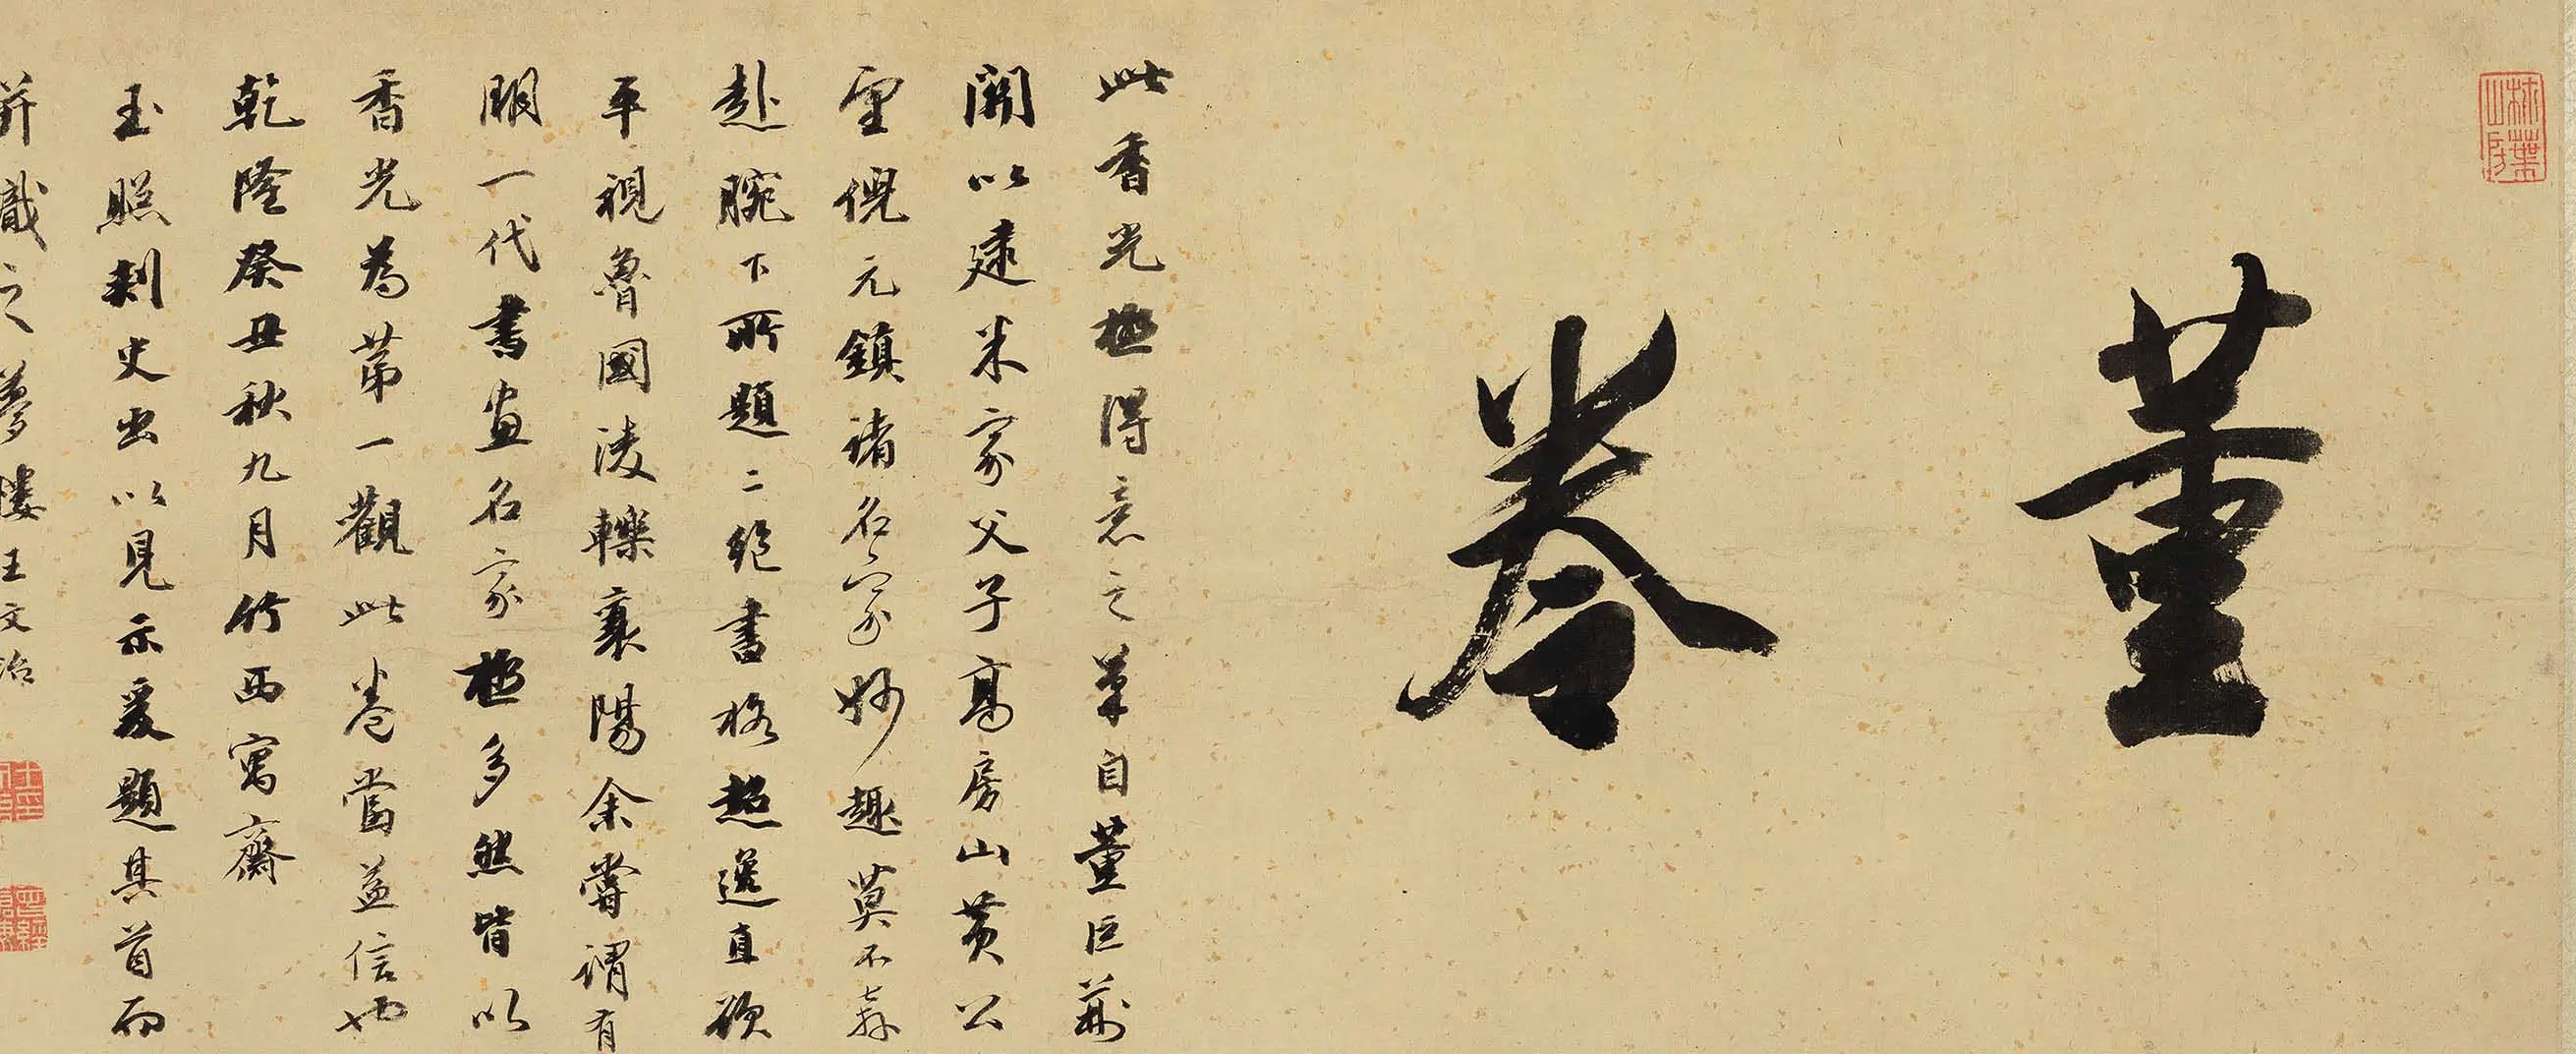 葉山房
董卷
此香光極得意之筆自董巨荊
關以逮米家父子高房山黃公
望倪元鎮諸名家妙趣莫不奔
赴腕下所題二絕書格超逸直欲
平視魯國淩轢襄陽余嘗謂有
明一代書畫名家極多然皆以
香光為第一觀此卷當益信也
乾隆癸丑秋九月竹西寓齋
玉照刺史出以見示爰題其首而
并識之夢樓王文治